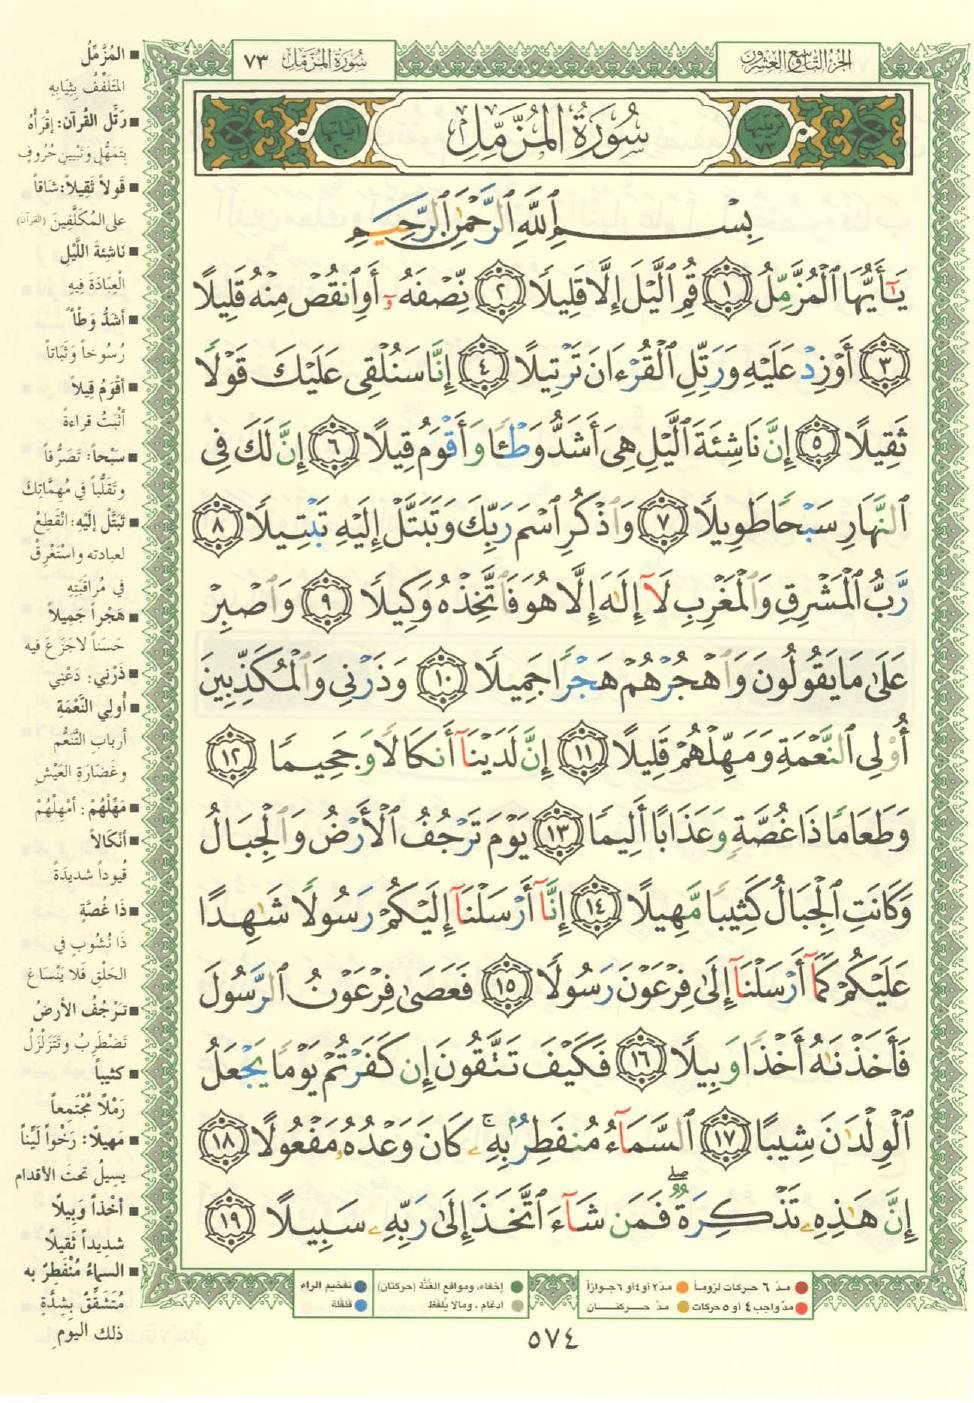 الجزء التاسع والعشرون
سورة المزمل ٧٣
ترتيبها ٧٣
سُورَةُ المُزَّمِّل
آياتها ٢٠
بِسْمِ ٱللَّهِ ٱلرَّحْمَٰنِ ٱلرَّحِيمِ
يَٰٓأَيُّهَا ٱلْمُزَّمِّلُ ١ قُمِ ٱلَّيْلَ إِلَّا قَلِيلًا ٢ نِّصْفَهُۥٓ أَوِ ٱنقُصْ مِنْهُ قَلِيلًا
٣ أَوْ زِدْ عَلَيْهِ وَرَتِّلِ ٱلْقُرْءَانَ تَرْتِيلًا ٤ إِنَّا سَنُلْقِى عَلَيْكَ قَوْلًا
ثَقِيلًا ٥ إِنَّ نَاشِئَةَ ٱلَّيْلِ هِىَ أَشَدُّ وَطْـًٔا وَأَقْوَمُ قِيلًا ٦ إِنَّ لَكَ فِى
ٱلنَّهَارِ سَبْحًا طَوِيلًا ٧ وَٱذْكُرِ ٱسْمَ رَبِّكَ وَتَبَتَّلْ إِلَيْهِ تَبْتِيلًا ٨
رَّبُّ ٱلْمَشْرِقِ وَٱلْمَغْرِبِ لَآ إِلَٰهَ إِلَّا هُوَ فَٱتَّخِذْهُ وَكِيلًا ٩ وَٱصْبِرْ
عَلَىٰ مَا يَقُولُونَ وَٱهْجُرْهُمْ هَجْرًا جَمِيلًا ١٠ وَذَرْنِى وَٱلْمُكَذِّبِينَ
أُو۟لِى ٱلنَّعْمَةِ وَمَهِّلْهُمْ قَلِيلًا ١١ إِنَّ لَدَيْنَآ أَنكَالًا وَجَحِيمًا ١٢
وَطَعَامًا ذَا غُصَّةٍ وَعَذَابًا أَلِيمًا ١٣ يَوْمَ تَرْجُفُ ٱلْأَرْضُ وَٱلْجِبَالُ
وَكَانَتِ ٱلْجِبَالُ كَثِيبًا مَّهِيلًا ١٤ إِنَّآ أَرْسَلْنَآ إِلَيْكُمْ رَسُولًا شَٰهِدًا
عَلَيْكُمْ كَمَآ أَرْسَلْنَآ إِلَىٰ فِرْعَوْنَ رَسُولًا ١٥ فَعَصَىٰ فِرْعَوْنُ ٱلرَّسُولَ
فَأَخَذْنَٰهُ أَخْذًا وَبِيلًا ١٦ فَكَيْفَ تَتَّقُونَ إِن كَفَرْتُمْ يَوْمًا يَجْعَلُ
ٱلْوِلْدَٰنَ شِيبًا ١٧ ٱلسَّمَآءُ مُنفَطِرٌۢ بِهِۦ ۚ كَانَ وَعْدُهُۥ مَفْعُولًا ١٨
إِنَّ هَٰذِهِۦ تَذْكِرَةٌ ۖ فَمَن شَآءَ ٱتَّخَذَ إِلَىٰ رَبِّهِۦ سَبِيلًا ١٩
■ المُزَّمِّلُ
المُتَلَفِّفُ بِثِيَابِهِ
■ رَتِّلِ القُرآنَ: إقْرَأْهُ
بِتَمَهُّلٍ وَتَبْيِينِ حُرُوفٍ
■ قَولاً ثَقِيلاً: شَاقاً
على المُكَلَّفِينَ (القرآن)
■ نَاشِئَةَ اللَّيْلِ
الْعِبَادَةَ فِيهِ
■ أَشَدُّ وَطْأً
رُسُوخاً وَثَبَاتاً
■ أَقْوَمُ قِيلاً
أثْبَتُ قراءةً
■ سَبْحاً: تَصَرُّفاً
وتَقَلُّباً في مُهِمَّاتِكَ
■ تَبَتَّلْ إلَيْهِ: انْقَطِعْ
لعبادته واسْتَغْرِقْ
في مُراقَبَتِهِ
■ هَجْراً جَمِيلاً
حَسَناً لا جَزَعَ فيه
■ ذَرْنِي: دَعْنِي
■ أُولِي النَّعْمَةِ
أربابِ التَّنَعُّمِ
وغَضَارَةِ العَيْشِ
■ مَهِّلْهُمْ: أمْهِلْهُمْ
■ أنْكَالاً
قُيوداً شديدَةً
■ ذَا غُصَّةٍ
ذَا نُشُوبٍ في
الحَلْقِ فَلا يَنْسَاغ
■ تَرْجُفُ الأَرضُ
تَضْطَرِبُ وتَتَزَلْزَلُ
■ كَثِيباً
رَمْلاً مُجْتَمِعاً
■ مَهِيلاً: رَخْواً لَيِّناً
يسِيلُ تحتَ الأقدام
■ أَخْذاً وَبِيلًا
شديداً ثَقِيلًا
■ السماءُ مُنْفَطِرٌ به
مُتَشَقِّقٌ بِشِدَّةِ
ذلك اليومِ
مدّ ٦ حركات لزوماً مدّ ٢ أو ٤ أو ٦ جوازاً
مدّ واجب ٤ أو ٥ حركات مدّ حركتان
إخفاء، ومواقع الغُنَّة (حركتان) تفخيم الراء
ادغام، ومالا يُلفَظ قلقلة
٥٧٤